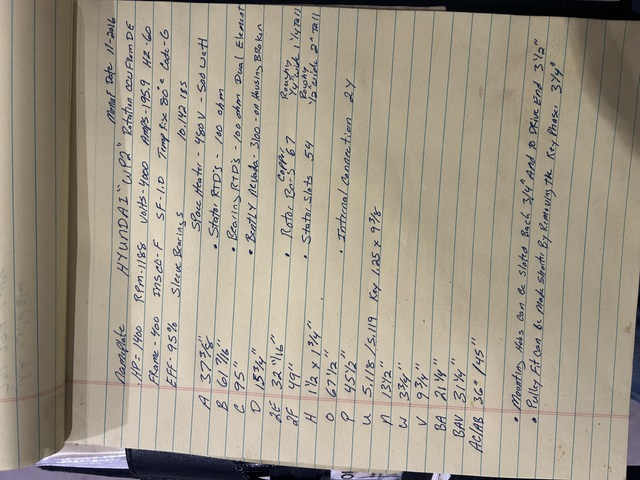 Nameplate HYUNDAI "WP2" Rotation CCW From DE Manuf Date 11-2016
HP- 1400 RPM-1188 Volts-4000 Amps-195.9 HZ-60
Frame-400 Ins Cl-F SF-1.0 Temp Rise 80°C Code-G
EFF- 95% Sleeve Bearings 10,142 lbs
A 37 3/8" Space Heater - 480V - 500 Watt
B 61 7/16" • Stator RTD's - 100 ohm
C 95" • Bearing RTD's - 100 ohm Dual Element
D 15 3/4" • Bently Nevada - 3300 - on Housing Broken
2E 32 11/16"
2F 49" • Rotor Bars 67 Copper Roughly 1/4" Wide 1 1/4 Tall
H 1 1/2 x 1 3/4" • Stator Slots 54 Roughly 1/2" Wide 2" Tall
O 67 1/2
P 45 1/2 • Internal Connection 2Y
U 5.118/5.119 Key 1.25 x 9 3/8
N 13 1/2
W 3 3/4"
V 9 3/4
BA 21 1/4"
BAV 31 1/4"
AC/AB 36"/45"
• Mounting Holes Can Be Slotted Back 3/4" And To Drive End 3 1/2"
• Pulley Fit Can Be Made Shorter By Removing The Key Phasor 3 1/4"